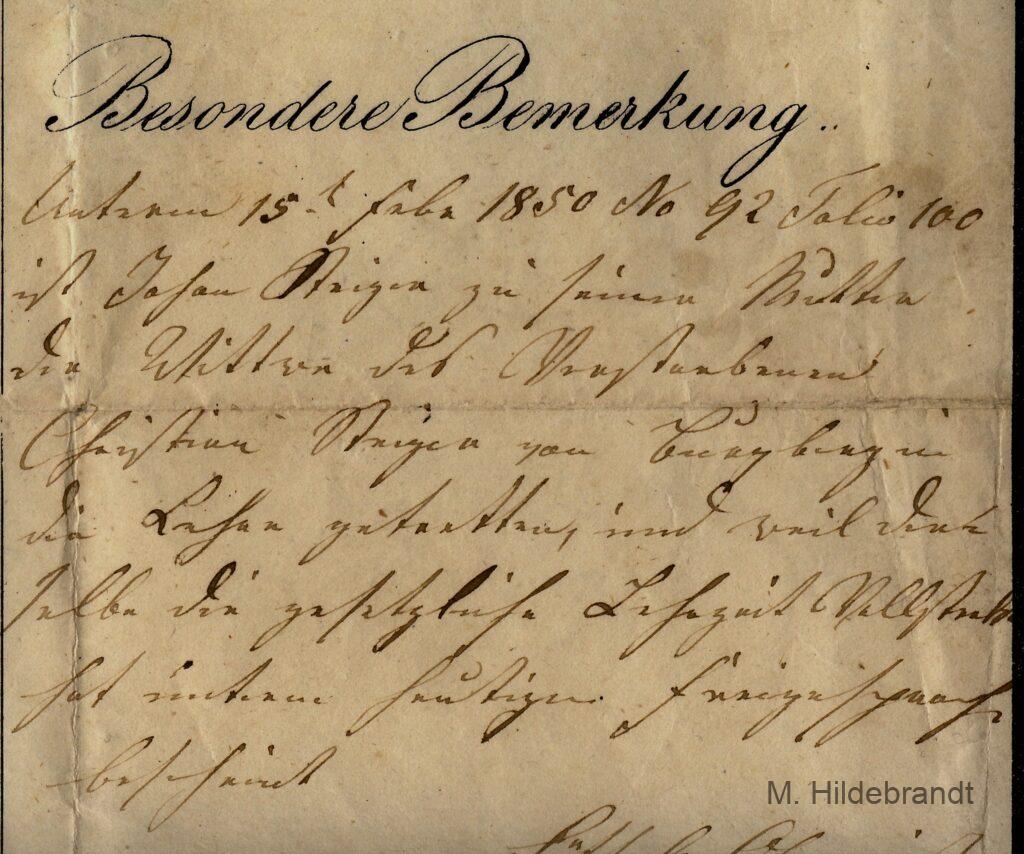 Besondere Bemerkung..
Unterm 15t Febr 1850 No 92 Folio 100
ist Johan Steiger zu seiner Mutter
der Wittwe des Verstorbenen
Christian Steiger von Burgberg in
die Lehre getretten, und weil der=
selbe die gesetzliche Lehrzeit Vollstrekt
hat unterm heutigen freigesproch
bescheint
M. Hildebrandt